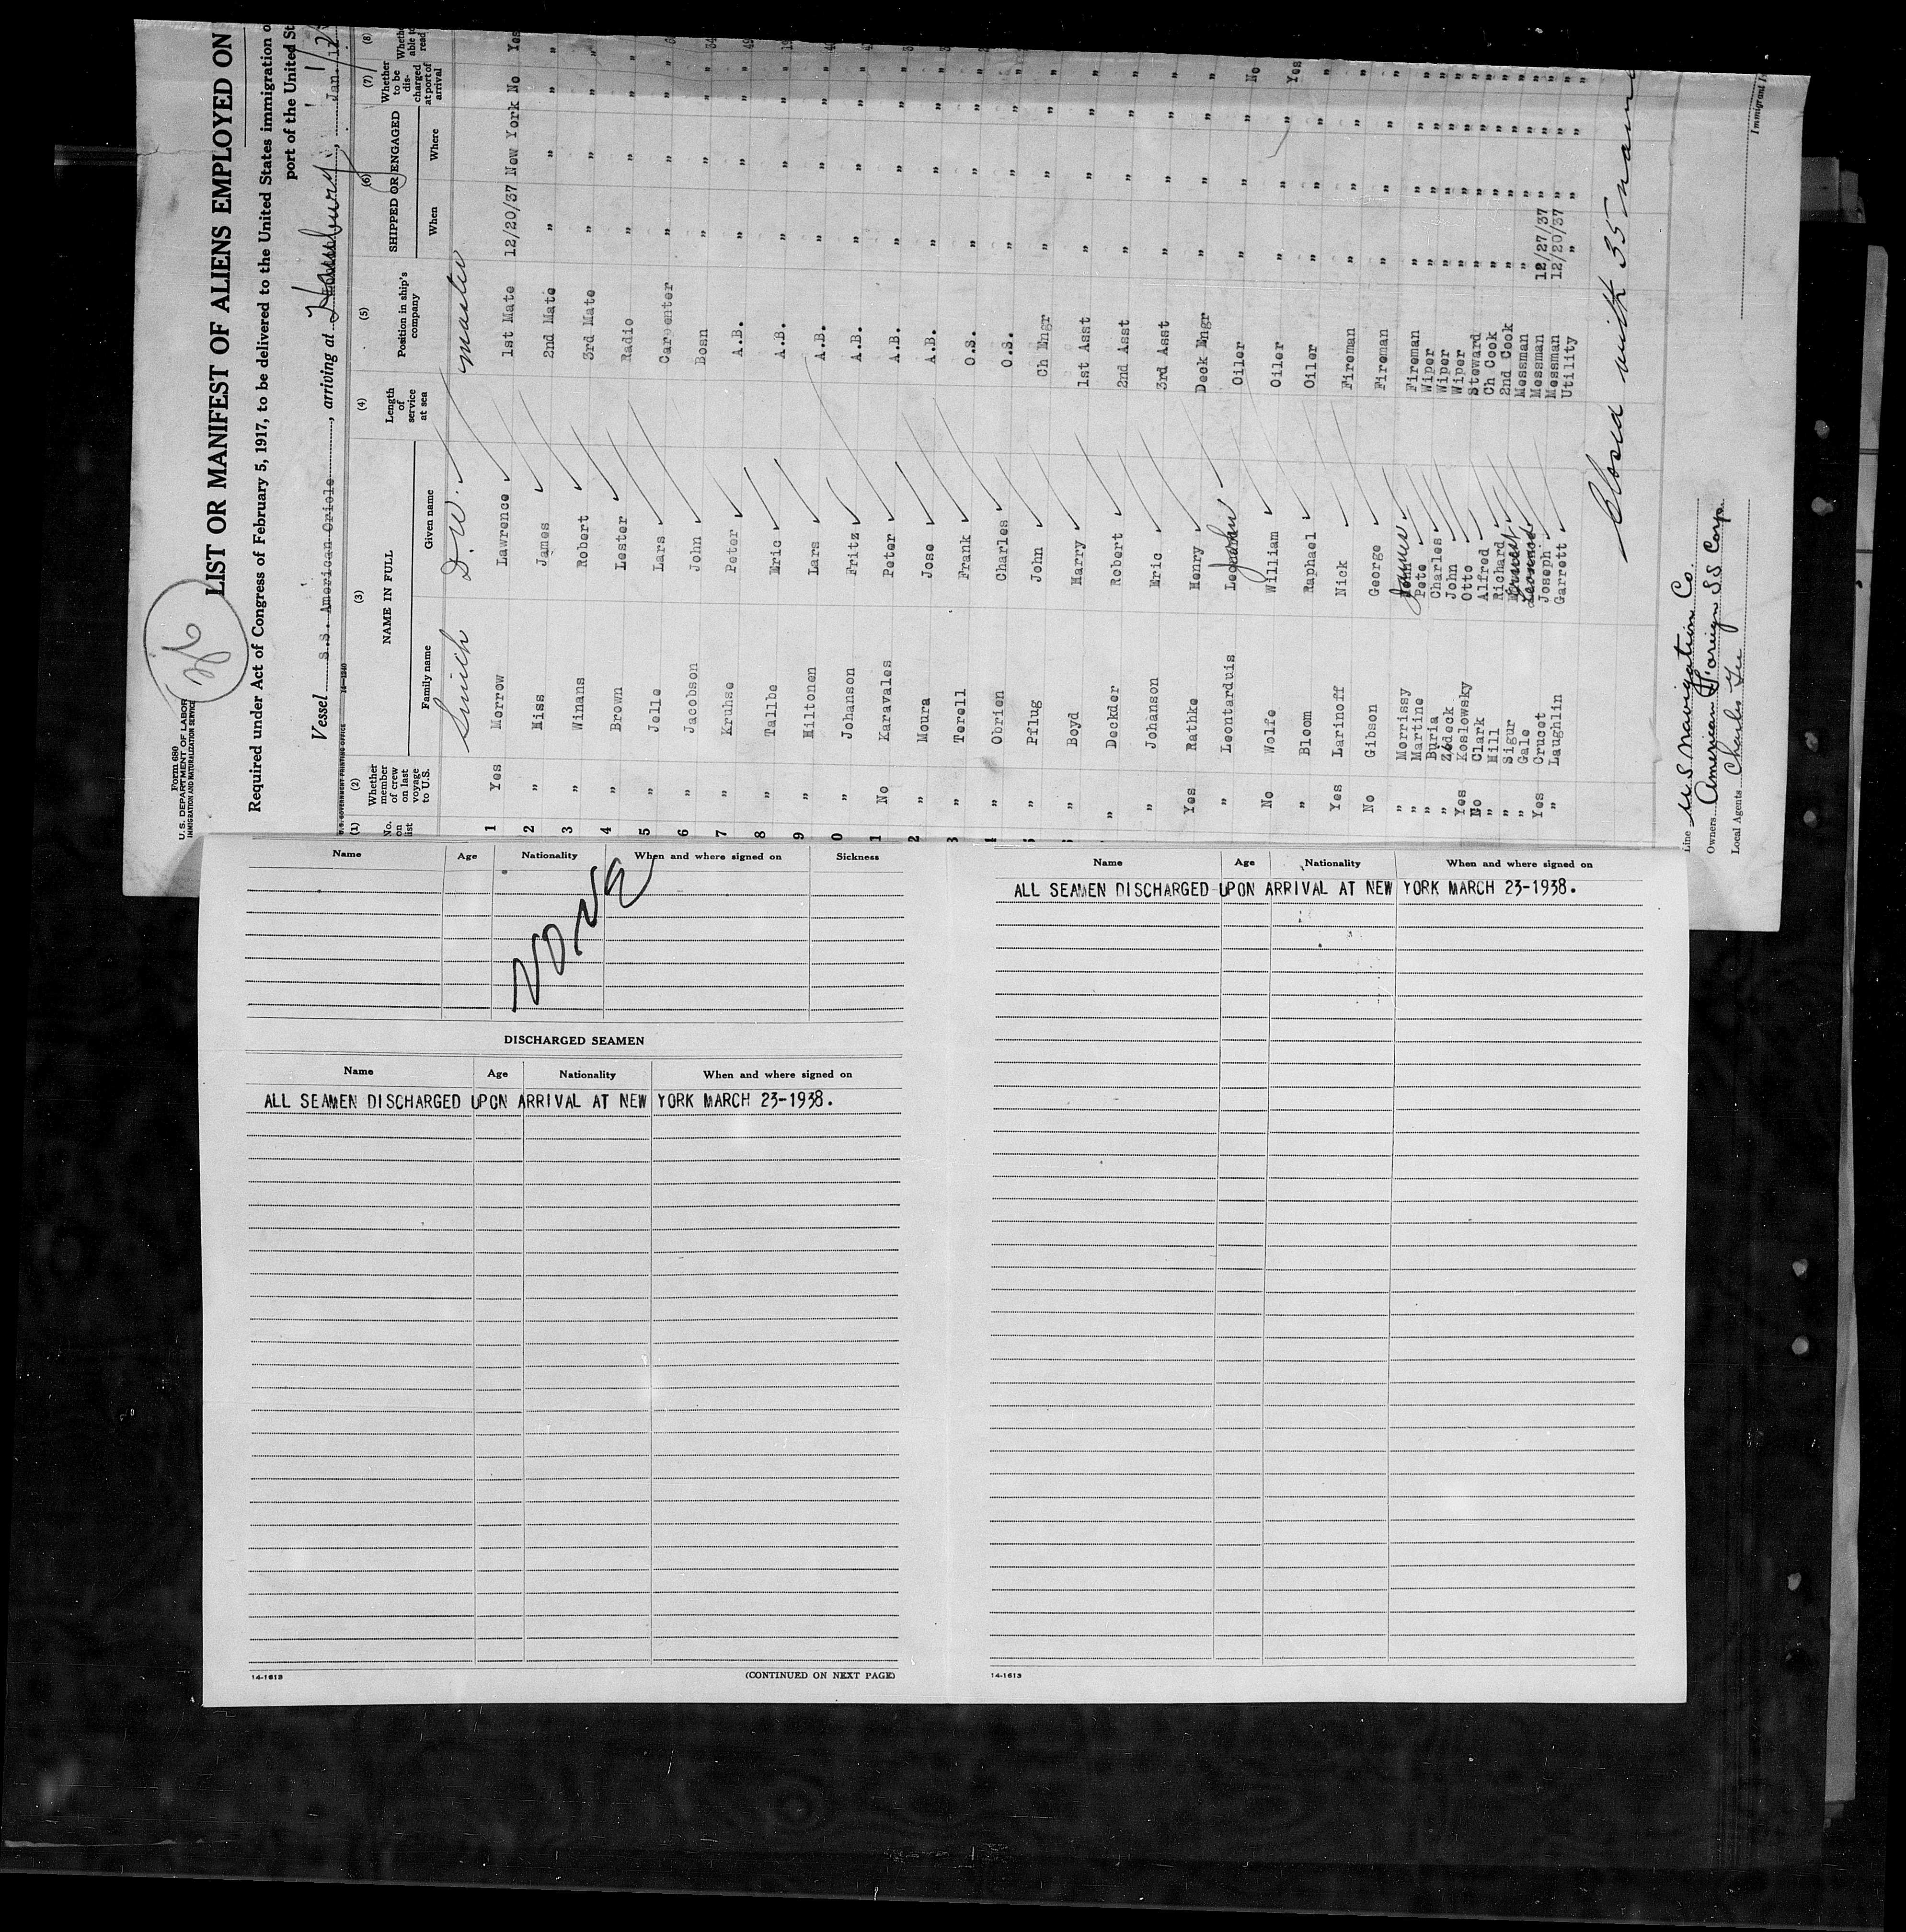 Form 680
U.S. DEPARTMENT OF LABOR
IMMIGRATION AND NATURALIZATION SERVICE
LIST OR MANIFEST OF ALIENS EMPLOYED ON
Required under Act of Congress of February 5, 1917, to be delivered to the United States immigration
port of the United
Vessel S.S. American Oriole, arriving at Jan. 12
U.S. GOVERNMENT PRINTING OFFICE 14-1240
(1) (2) (3) (4) (5) (6) (7) (8)
No. on list Whether member of crew on last voyage to U.S. NAME IN FULL Length of service at sea Position in ship's company SHIPPED OR ENGAGED Whether to be discharged at port of arrival
Family name Given name When Where
Smith D.W. Master
1 Yes Morrow Lawrence 1st Mate 12/20/37 New York No Yes
2 " Hiss James 2nd Mate " " " "
3 " Winans Robert 3rd Mate " " " "
4 " Brown Lester Radio " " " "
5 " Jelle Lars Carpenter " " "
6 " Jacobson John Bosn " " "
7 " Kruhse Peter A.B. " " "
8 " Tallbe Eric A.B. " " "
9 " Hiltonen Lars A.B. " " "
0 " Johanson Fritz A.B. " " "
1 No Karavales Peter A.B. " " "
2 " Moura Jose A.B. " " "
3 " Terell Frank O.S. " " "
4 " Obrien Charles O.S. " " "
" Pflug John Ch Engr " " "
" Boyd Harry 1st Asst " " "
" Deckder Robert 2nd Asst " " "
" Johanson Eric 3rd Asst " " "
Yes Rathke Henry Deck Engr " " "
" Leontarduis John Oiler " " " No
No Wolfe William Oiler " " " Yes
" Bloom Raphael Oiler " " "
Yes Larinoff Nick Fireman " " "
No Gibson George Fireman " " "
" Morrissy James Fireman " " "
" Martine Pete Wiper " " "
" Buria Charles Wiper " " "
" Zedeck John Wiper " " "
Yes Koslowsky Otto Steward " " "
No Clark Alfred Ch Cook " " "
" Hill Richard 2nd Cook " " "
" Sigur Ernest Messman " " "
" Gale Messman 12/27/37 " "
Yes Crucet Joseph Messman 12/20/37 " "
" Laughlin Garrett Utility " " "
Closed with 35 names
Line U.S. Navigation Co.
Owners American Foreign SS Corp.
Local Agents Charles
Name Age Nationality When and where signed on Sickness
NONE
DISCHARGED SEAMEN
Name Age Nationality When and where signed on
ALL SEAMEN DISCHARGED UPON ARRIVAL AT NEW YORK MARCH 23-1938.
14-1613 (CONTINUED ON NEXT PAGE)
Name Age Nationality When and where signed on
ALL SEAMEN DISCHARGED UPON ARRIVAL AT NEW YORK MARCH 23-1938.
14-1613